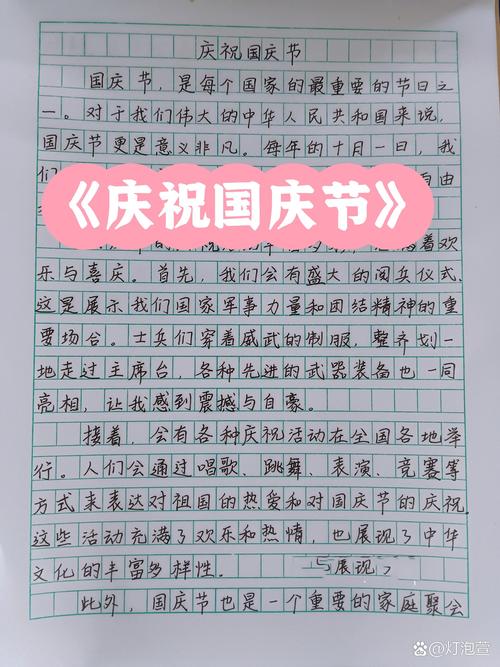 庆祝国庆节
国庆节，是每个国家的最重要的节日之
一。对于我们伟大的中华人民共和国来说，
国庆节更是意义非凡。每年的十月一日，我
们
自由
《庆祝国庆节》
着欢
乐与喜庆。首先，我们会有盛大的阅兵仪式，
这是展示我们国家军事力量和团结精神的重
要场合。士兵们穿着威武的制服，整齐划一
地走过主席台，各种先进的武器装备也一同
亮相，让我感到震撼与自豪。
接着，会有各种庆祝活动在全国各地举
行。人们会通过唱歌、跳舞、表演、竞赛等
方式来表达对祖国的热爱和对国庆节的庆祝。
这些活动充满了欢乐和热情，也展现了中华
文化的丰富多样性。
展现
此外，国庆节也是一个重要的家庭聚会
灯泡萱